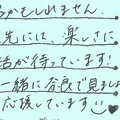 るかもしれません。
先には、楽しさに
活が待っています!
一緒に奈良で見まし
応援しています